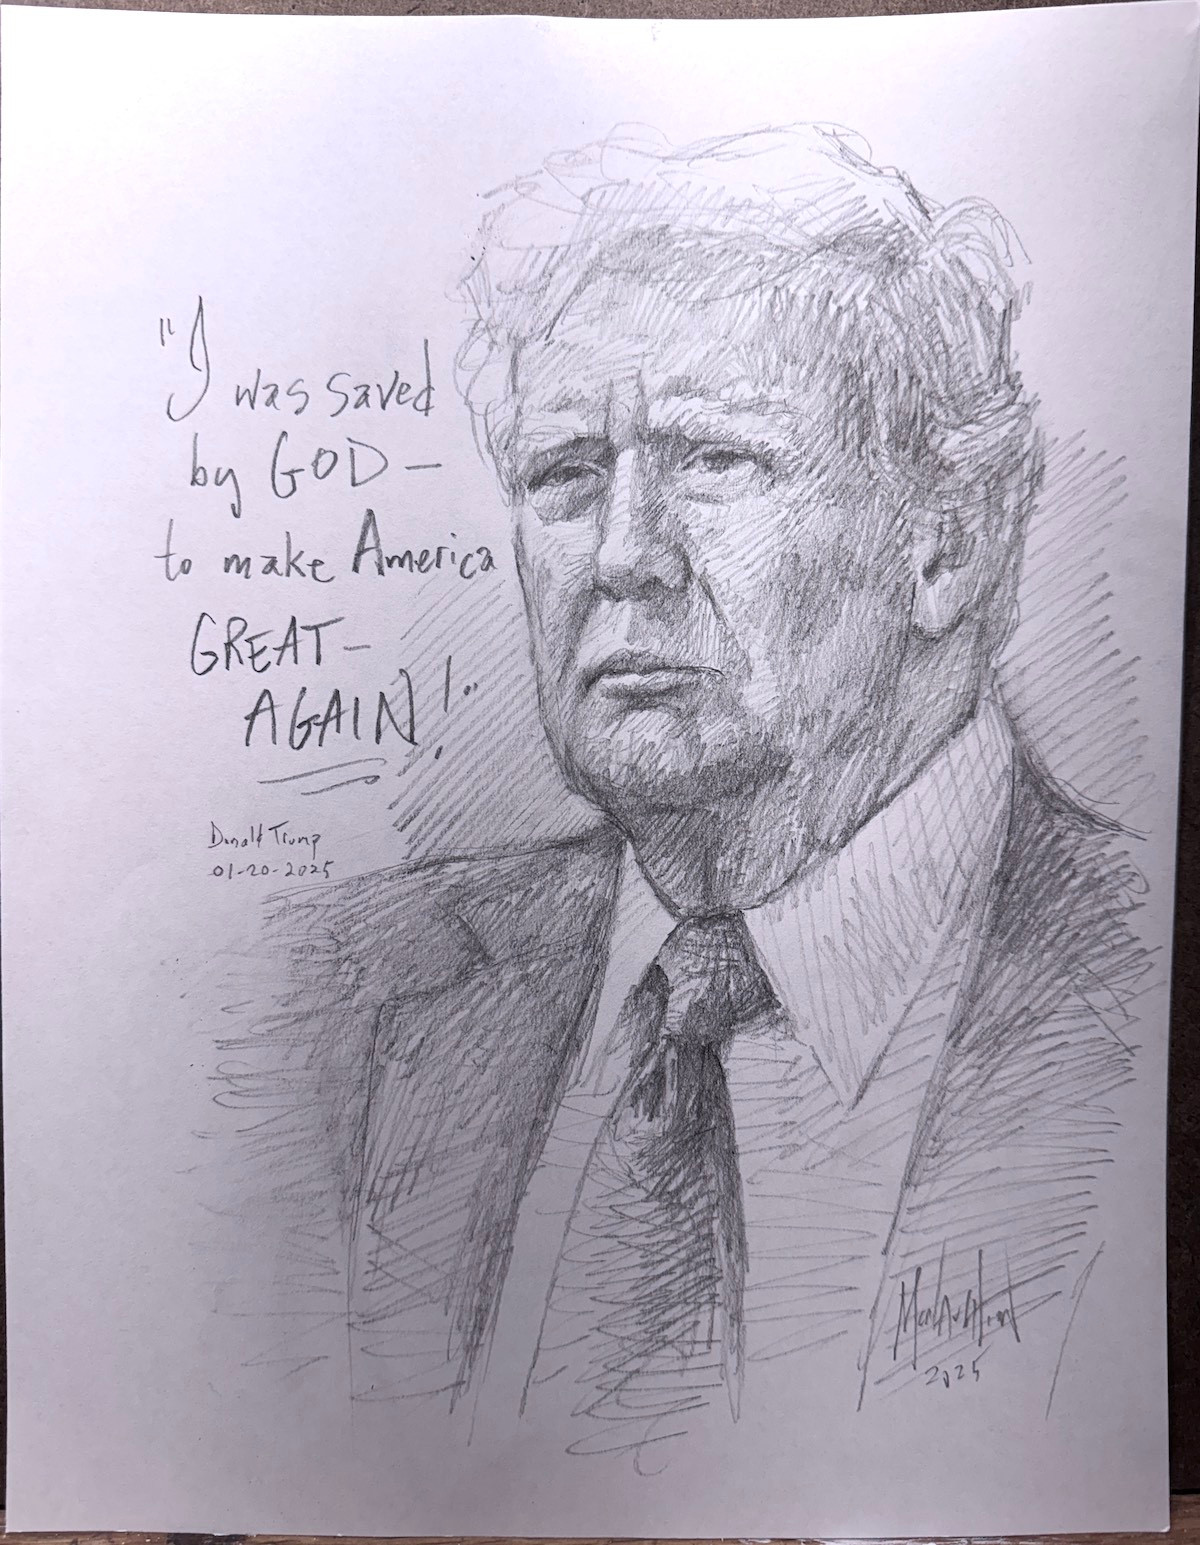 "I
was saved
by GOD —
to make America
GREAT —
AGAIN!"
Donald Trump
01-20-2025
McNaughton
2025